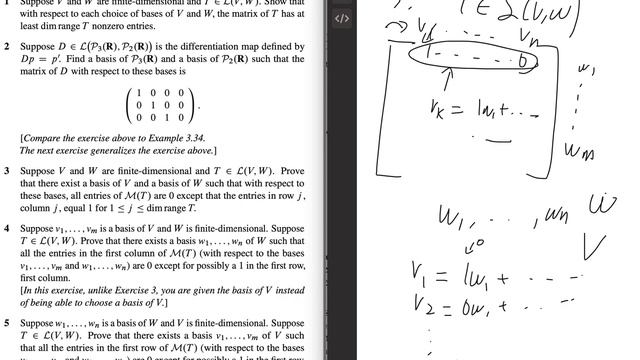 1 Suppose V and W are finite-dimensional and T ∈ ℒ(V, W). Show that
with respect to each choice of bases of V and W, the matrix of T has at
least dim range T nonzero entries.
2 Suppose D ∈ ℒ(𝒫₃(R), 𝒫₂(R)) is the differentiation map defined by
Dp = p′. Find a basis of 𝒫₃(R) and a basis of 𝒫₂(R) such that the
matrix of D with respect to these bases is
1 0 0 0
0 1 0 0
0 0 1 0
[Compare the exercise above to Example 3.34.
The next exercise generalizes the exercise above.]
3 Suppose V and W are finite-dimensional and T ∈ ℒ(V, W). Prove
that there exist a basis of V and a basis of W such that with respect to
these bases, all entries of ℳ(T) are 0 except that the entries in row j,
column j, equal 1 for 1 ≤ j ≤ dim range T.
4 Suppose v₁, . . . , vₘ is a basis of V and W is finite-dimensional. Suppose
T ∈ ℒ(V, W). Prove that there exists a basis w₁, . . . , wₙ of W such that
all the entries in the first column of ℳ(T) (with respect to the bases
v₁, . . . , vₘ and w₁, . . . , wₙ) are 0 except for possibly a 1 in the first row,
first column.
[In this exercise, unlike Exercise 3, you are given the basis of V instead
of being able to choose a basis of V.]
5 Suppose w₁, . . . , wₙ is a basis of W and V is finite-dimensional. Suppose
T ∈ ℒ(V, W). Prove that there exists a basis v₁, . . . , vₘ of V such
that all the entries in the first row of ℳ(T) (with respect to the bases
</>
T ∈ ℒ(V, W)
vₙ
1 - - - - 0
w₁
vₖ = 1w₁ + - - -
wₘ
w₁, . . . , wₙ W
V
v₁ = 1w₁ + - - - -
v₂ = 0w₁ + - - - -